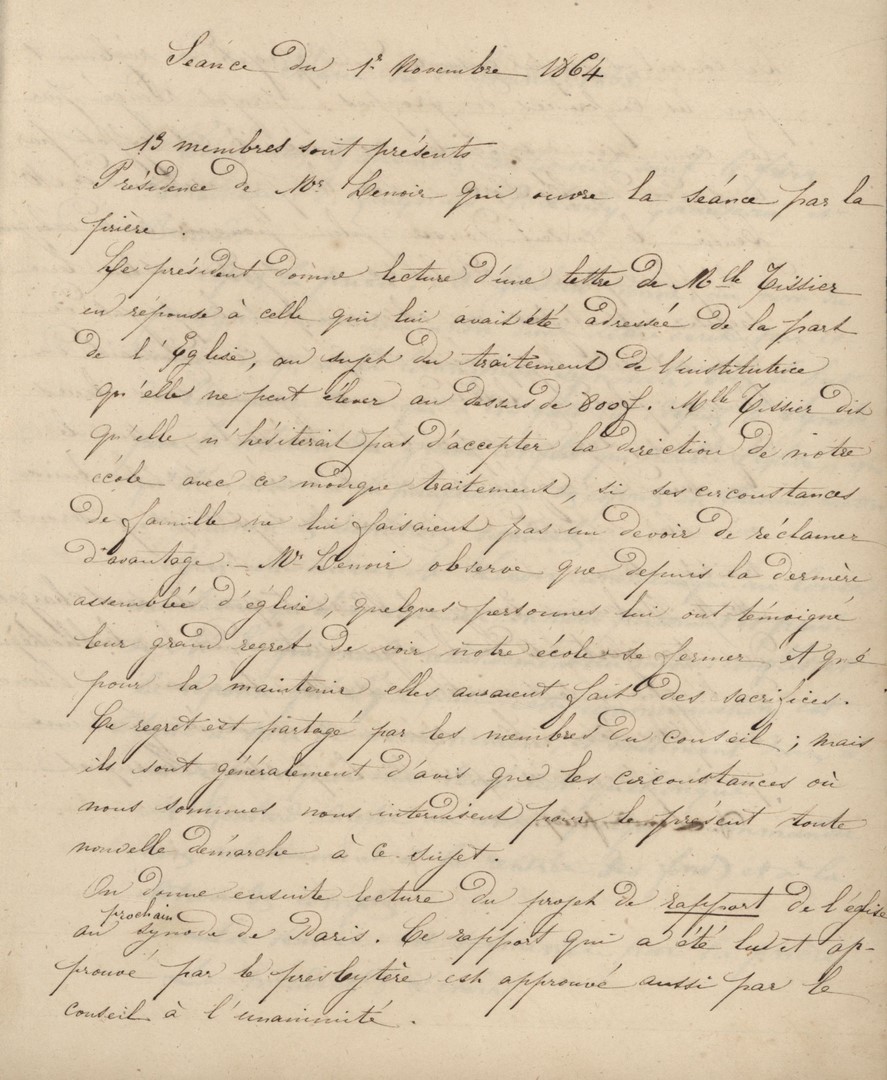 Séance du 1r Novembre 1864
13 membres sont présents
Présidence de Mr Lenoir qui ouvre la séance par la
prière.
Le président donne lecture d'une lettre de Mlle Tissier
en réponse à celle qui lui avait été adressée de la part
de l'Eglise, au sujet du traitement de l'institutrice
qu'elle ne peut élever au dessus de 800f. Mlle Tissier dit
qu'elle n'hésiterait pas d'accepter la direction de notre
école avec ce modique traitement, si ses circonstances
de famille ne lui faisaient pas un devoir de réclamer
d'avantage. – Mr Lenoir observe que depuis la dernière
assemblée d'église, quelques personnes lui ont témoigné
leur grand regret de voir notre école se fermer, et que
pour la maintenir elles auraient fait des sacrifices.
Ce regret est partagé par les membres du conseil ; mais
ils sont généralement d'avis que les circonstances où
nous sommes nous interdisent pour le présent toute
nouvelle démarche à ce sujet.
On donne ensuite lecture du projet de rapport de l'église
au prochain synode de Paris. Ce rapport qui a été lu et ap-
prouvé par le presbytère est approuvé aussi par le
conseil à l'unanimité.